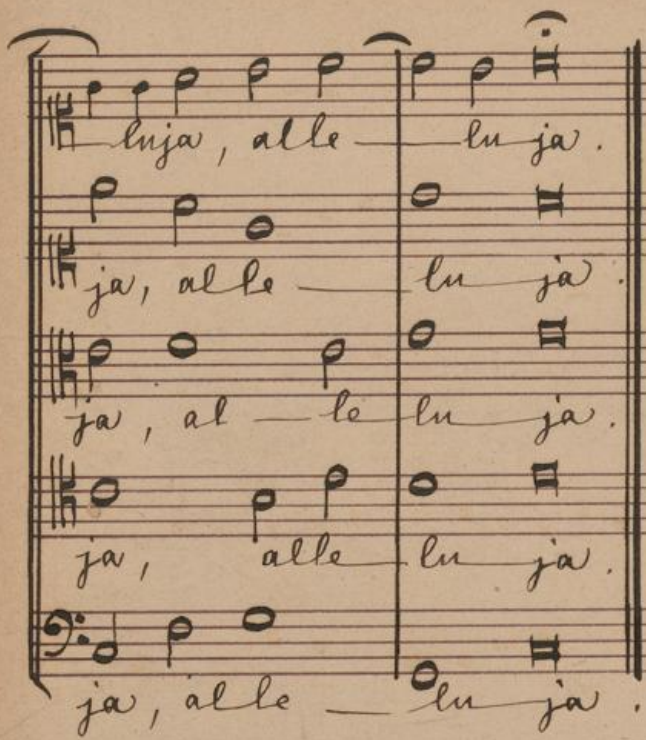 luja, alle — lu ja.
ja, alle — lu — ja.
ja, al — le — lu — ja.
ja, alle — lu — ja.
ja, alle — lu — ja.